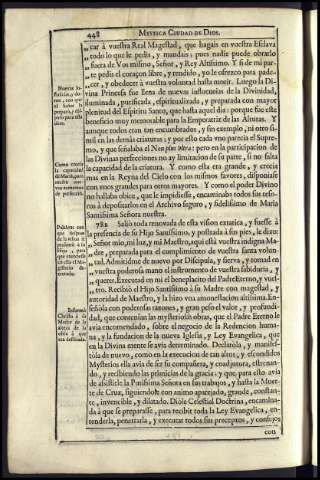 448 MYSTICA CIUDAD DE DIOS.
car à vuestra Real Magestad, que hagais en vuestra Esclava
todo lo que le pedis, y mandais; pues nadie puede obrarlo
fuera de Vos mismo, Señor, y Rey Altissimo. Y si de mi par-
te pedis el coraçon libre, y rendido, yo le ofrezco para pade-
cer, y obedecer à vuestra voluntad hasta morir. Luego la Di-
vina Princesa fue llena de nuevas influencias de la Divinidad,
iluminada, purificada, espiritualizada, y preparada con mayor
plenitud del Espiritu Santo, que hasta aquel dia: porque fue este
beneficio muy memorable para la Emperatriz de las Alturas. Y
aunque todos eran tan encumbrados, y sin exemplo, ni otro si-
mil en las demàs criaturas; y por esto cada vno parecia el Supre-
mo, y que señalaba el Non plus vltra: pero en la participacion de
las Divinas perfecciones no ay limitacion de su parte, si no falta
la capacidad de la criatura. Y como esta era grande, y crecia
mas en la Reyna del Cielo con los mismos favores, disponiase
con vnos grandes para otros mayores. Y como el poder Divino
no hallaba obice, que le impidiesse, encaminaba todos sus teso-
ros à depositarlos en el Archivo seguro, y fidelissimo de Maria
Santissima Señora nuestra.
782 Saliò toda renovada de esta vision extatica, y fuesse à
la presencia de su Hijo Santissimo, y postrada à sus pies, le dixo:
Señor mio, mi luz, y mi Maestro, aqui està vuestra indigna Ma-
dre, preparada para el cumplimiento de vuestra santa volun-
tad. Admitidme de nuevo por Discipula, y sierva, y tomad en
vuestra poderosa mano el instrumento de vuestra sabiduria, y
querer. Executad en mi el beneplacito del Padre Eterno, y vuest-
tro. Recibiò el Hijo Santissimo à su Madre con magestad, y
autoridad de Maestro, y la hizo vna amonestacion altissima. En-
señòla con poderosas razones, y gran peso el valor, y profundi-
dad, que contenian las mysteriosas obras, que el Padre Eterno le
avia encomendado, sobre el negocio de la Redencion huma-
na, y la fundacion de la nueva Iglesia, y Ley Evangelica, que
en la Divina mente se avia determinado. Declaròla, y manifes-
tòla de nuevo, como en la execucion de tan altos, y escondidos
Mysterios ella avia de ser su compañera, y coadjutora, estrenan-
do, y recibiendo las primicias de la gracia: y que para esto avia
de assistirle la Purissima Señora en sus trabajos, y hasta la Muer-
te de Cruz, siguiendole con animo aparejado, grande, constan-
te, invencible, y dilatado. Diòle Celestial Doctrina, encamina-
da à que se preparasse, para recibir toda la Ley Evangelica, en-
tenderla, penetrarla, y executar todos sus preceptos, y consejos
con